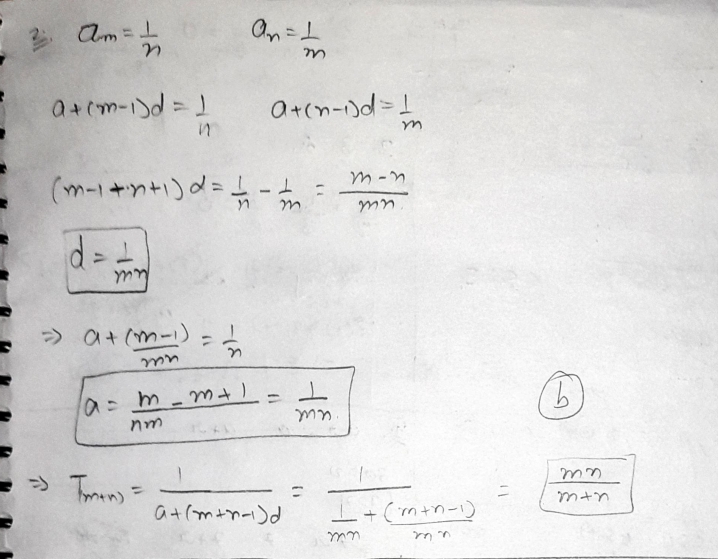 2. am = 1/n    an = 1/m
a+(m-1)d = 1/n    a+(n-1)d = 1/m
(m-1+n+1)d = 1/n - 1/m = (m-n)/mn
d = 1/mn
⇒ a + (m-1)/mn = 1/n
a = (m-m+1)/nm = 1/mn    b
⇒ T(m+n) = 1/(a+(m+n-1)d) = 1/(1/mn + (m+n-1)/mn) = mn/(m+n)